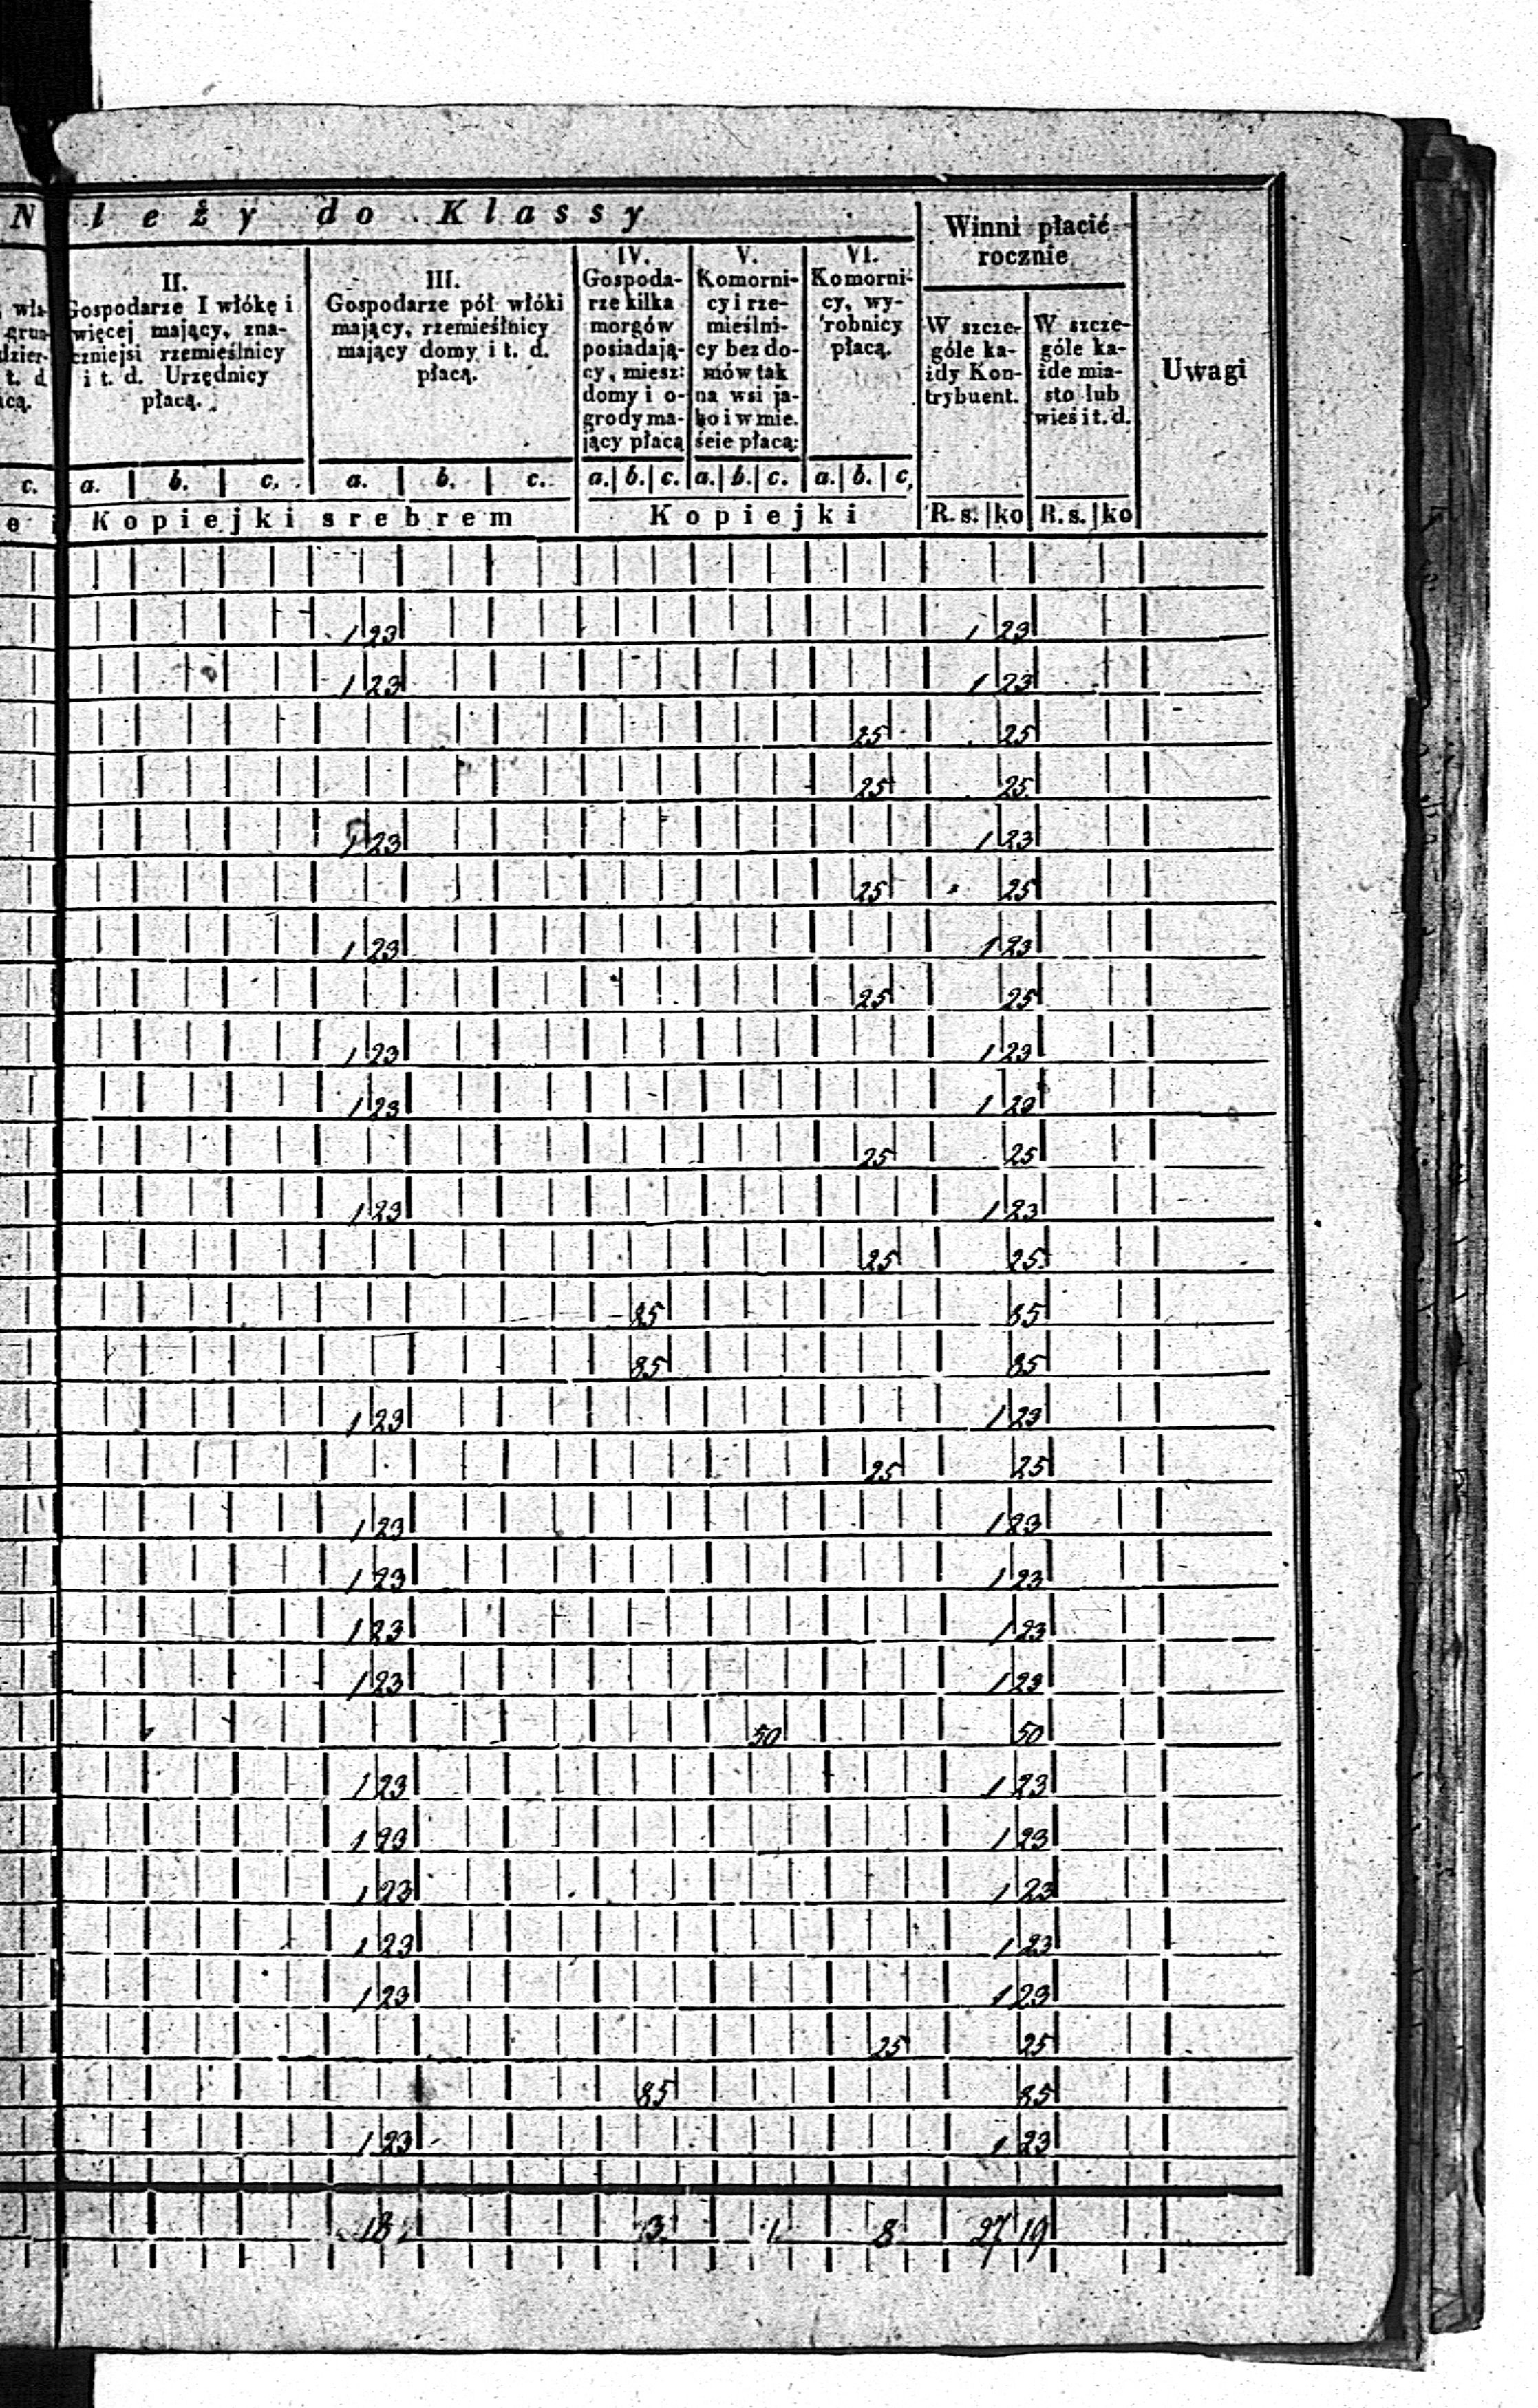 N l e ż y do Klassy
Winni płacić rocznie
Uwagi
c.
II.
Gospodarze I włókę i
więcej mający, zna-
czniejsi rzemieślnicy
i t. d. Urzędnicy
płacą.
III.
Gospodarze pół włóki
mający, rzemieślnicy
mający domy i t. d.
płacą.
IV.
Gospoda-
rze kilka
morgów
posiadają-
cy, miesz:
domy i o-
grody ma-
jący płacą
V.
Komorni-
cy i rze-
mieślni-
cy bez do-
mów tak
na wsi ja-
ko i w mie.
ście płacą:
VI.
Komorni-
cy, wy-
robnicy
płacą.
W szcze-
góle ka-
żdy Kon-
trybuent.
W szcze-
góle ka-
żde mia-
sto lub
wieś i t. d.
a. b. c. a. b. c. a. b. c. a. b. c. a. b. c.
Kopiejki srebrem Kopiejki R. s. ko R. s. ko
1 23 1 23
1 23 1 23
25 25
25 25
1 23 1 23
25 25
1 23 1 23
25 25
1 23 1 23
1 23 1 23
25 25
1 23 1 23
25 25
85 85
85 85
1 23 1 23
25 25
1 23 1 23
1 23 1 23
1 23 1 23
1 23 1 23
50 50
1 23 1 23
1 23 1 23
1 23 1 23
1 23 1 23
1 23 1 23
25 25
85 85
1 23 1 23
18 3 1 8 27 19